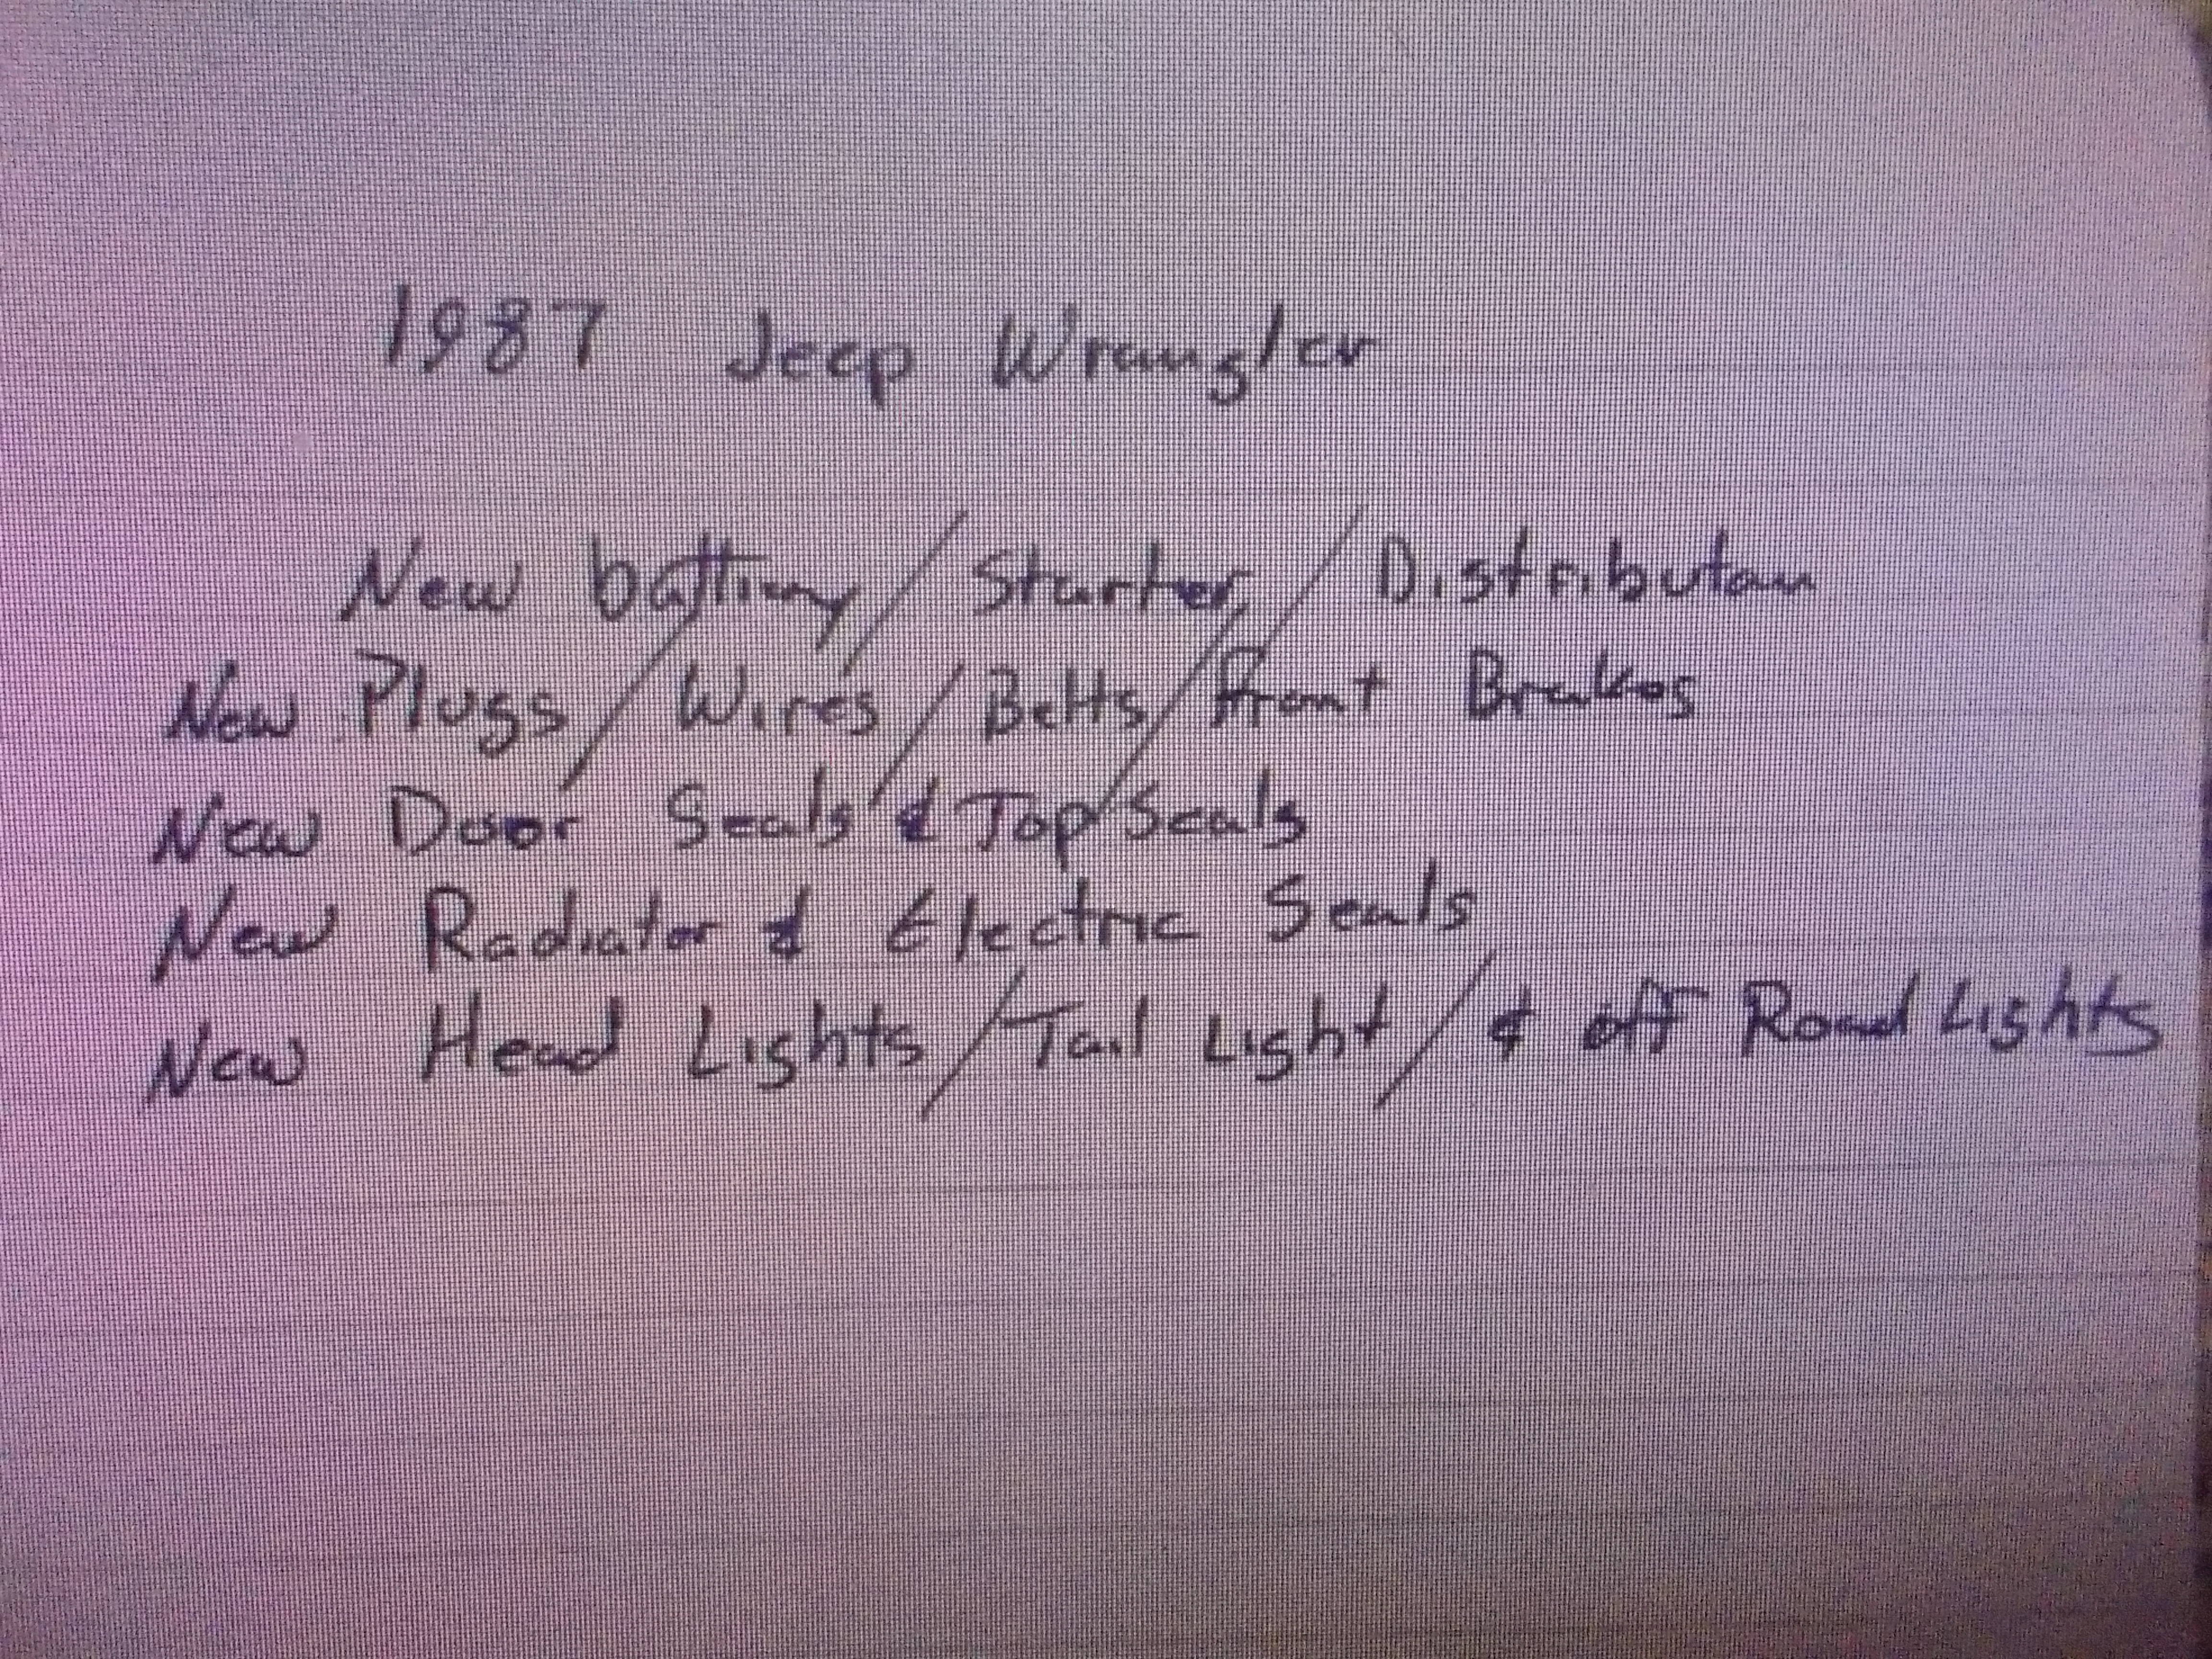 1987 Jeep Wrangler
New battery / Starter / Distributor
New Plugs / Wires / Belts / Front Brakes
New Door Seals & Top Seals
New Radiator & Electric Seals
New Head Lights / Tail Light / & off Road Lights